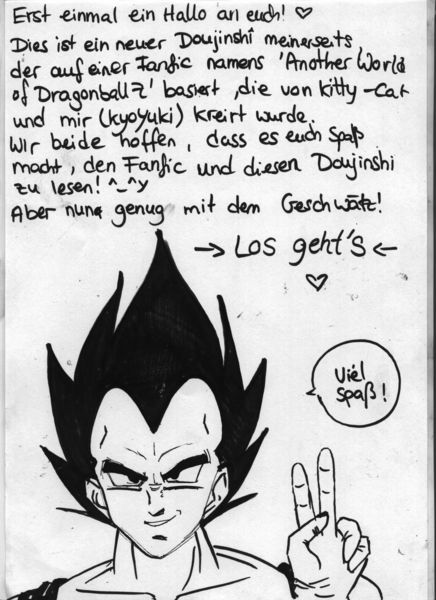 Erst einmal ein Hallo an euch! ♡
Dies ist ein neuer Doujinshi meinerseits,
der auf einer Fanfic namens 'Another World
of Dragonball Z' basiert, die von Kitty-Cat
und mir (kyoyuki) kreirt wurde.
Wir beide hoffen, dass es euch Spaß
macht, den Fanfic und diesen Doujinshi
zu lesen! ^_^y
Aber nun genug mit dem Geschwätz!
→ Los geht's ←
♡
Viel
Spaß!